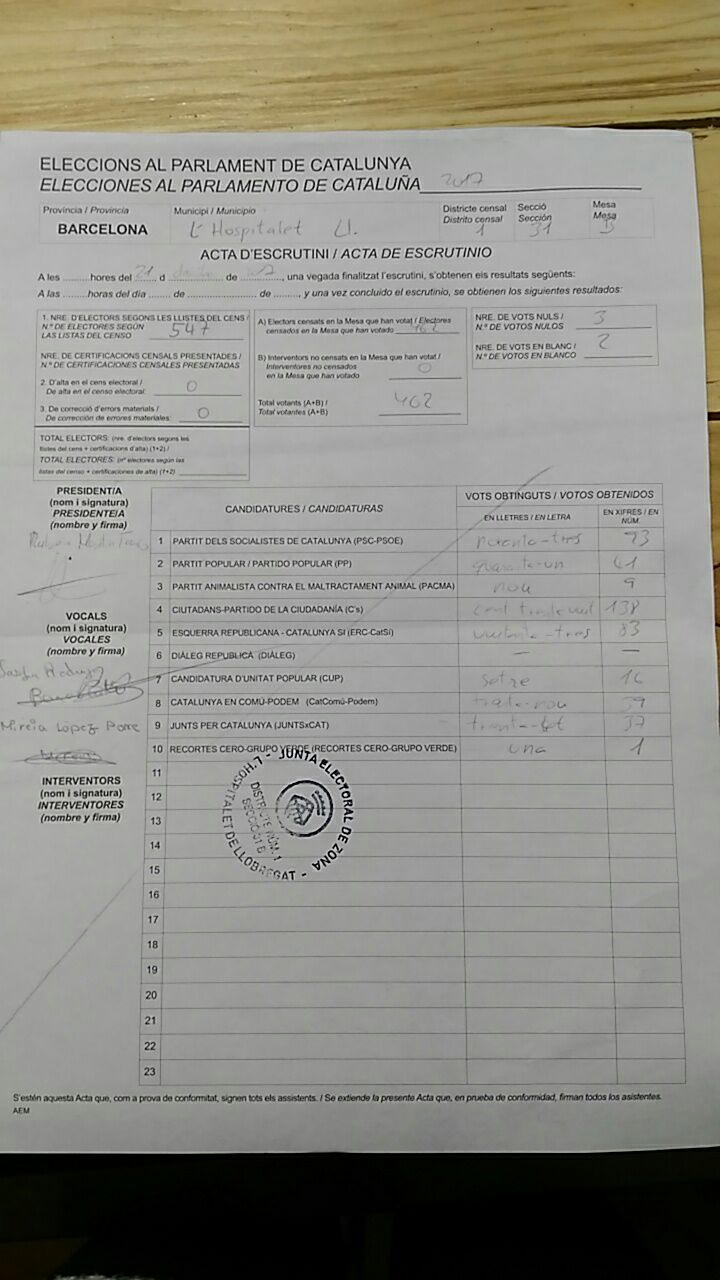 ELECCIONS AL PARLAMENT DE CATALUNYA
ELECCIONES AL PARLAMENTO DE CATALUÑA 2017
Provincia / Provincia
BARCELONA
Municipi / Municipio
L'Hospitalet Ll.
Districte censal
Distrito censal
1
Secció
Sección
31
Mesa
Mesa
B
ACTA D'ESCRUTINI / ACTA DE ESCRUTINIO
A les ......... hores del 21 d de 2017, una vegada finalitzat l'escrutini, s'obtenen els resultats següents:
A las ......... horas del día ...... de ...................... de ........, y una vez concluido el escrutinio, se obtienen los siguientes resultados:
1. NRE. D'ELECTORS SEGONS LES LLISTES DEL CENS /
N.º DE ELECTORES SEGÚN
LAS LISTAS DEL CENSO 547
NRE. DE CERTIFICACIONS CENSALS PRESENTADES /
N.º DE CERTIFICACIONES CENSALES PRESENTADAS
2. D'alta en el cens electoral /
De alta en el censo electoral: 0
3. De correcció d'errors materials /
De corrección de errores materiales: 0
TOTAL ELECTORS: (nre. d'electors segons les
llistes del cens + certificacions d'alta) (1+2) /
TOTAL ELECTORES: (nº electores según las
listas del censo + certificaciones de alta) (1+2)
A) Electors censats en la Mesa que han votat / Electores
censados en la Mesa que han votado 462
B) Interventors no censats en la Mesa que han votat /
Interventores no censados
en la Mesa que han votado 0
Total votants (A+B) /
Total votantes (A+B) 462
NRE. DE VOTS NULS /
N.º DE VOTOS NULOS 3
NRE. DE VOTS EN BLANC /
N.º DE VOTOS EN BLANCO 2
PRESIDENT/A
(nom i signatura)
PRESIDENTE/A
(nombre y firma)
VOCALS
(nom i signatura)
VOCALES
(nombre y firma)
Mireia López Porre
INTERVENTORS
(nom i signatura)
INTERVENTORES
(nombre y firma)
CANDIDATURES / CANDIDATURAS
VOTS OBTINGUTS / VOTOS OBTENIDOS
EN LLETRES / EN LETRA
EN XIFRES / EN NÚM.
1 PARTIT DELS SOCIALISTES DE CATALUNYA (PSC-PSOE) noranta-tres 93
2 PARTIT POPULAR / PARTIDO POPULAR (PP) quaranta-un 41
3 PARTIT ANIMALISTA CONTRA EL MALTRACTAMENT ANIMAL (PACMA) nou 9
4 CIUTADANS-PARTIDO DE LA CIUDADANÍA (C's) cent trenta-vuit 138
5 ESQUERRA REPUBLICANA - CATALUNYA SI (ERC-CatSí) vuitanta-tres 83
6 DIÀLEG REPUBLICÀ (DIÀLEG) — —
7 CANDIDATURA D'UNITAT POPULAR (CUP) setze 16
8 CATALUNYA EN COMÚ-PODEM (CatComú-Podem) trenta-nou 39
9 JUNTS PER CATALUNYA (JUNTSxCAT) trenta-set 37
10 RECORTES CERO-GRUPO VERDE (RECORTES CERO-GRUPO VERDE) una 1
11
12
13
14
15
16
17
18
19
20
21
22
23
JUNTA ELECTORAL DE ZONA - L'HOSPITALET DE LLOBREGAT -
DISTRICTE NÚM. 1
SECCIÓ 31 B
S'estén aquesta Acta que, com a prova de conformitat, signen tots els assistents. / Se extiende la presente Acta que, en prueba de conformidad, firman todos los asistentes.
AEM